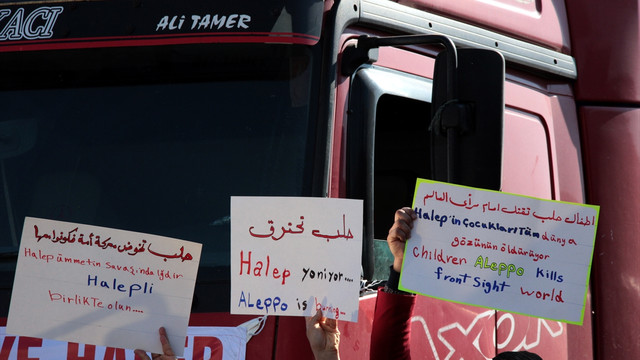 ALİ TAMER
حلب تخوض معركة أمة فكونوا معها
Halep ümmetin Savaşında Iğdır
Halepli
birlikte olun....
حلب تحترق
Halep yoniyor....
ALeppo is burning....
اطفال حلب تقتل امام مرأى العالم
Halep'in çocukları Tüm dünya
gözünün öldürüyor
children ALeppo kills
front Sight world